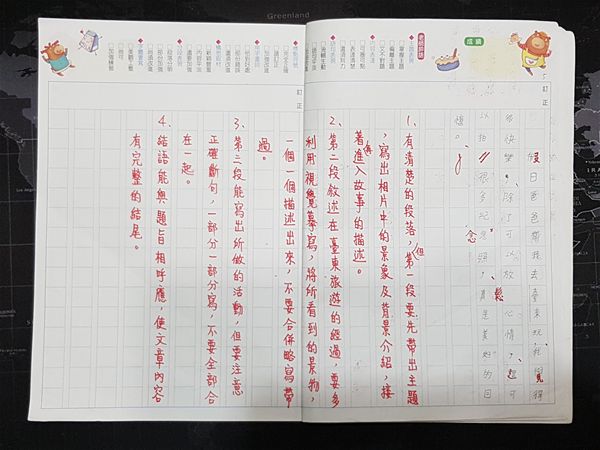 Greenland
訂正
假日爸爸帶我去臺東玩，我覺得
很快樂，除了可以放鬆心情，還可
以拍很多紀念照，真是美好的回
憶。
成績
老師評語
1、有清楚的段落，但第一段要先帶出主題
，寫出相片中的景象及背景介紹，接
著再進入故事的描述。
2、第二段敘述在臺東旅遊的經過，要多
利用視覺摹寫，將所看到的景物，
一個一個描述出來，不要合併略寫帶
過。
3、第三段能寫出所做的活動，但要注意
正確斷句，一部分一部分寫，不要全部合
在一起。
4、結語能與題旨相呼應，使文章內容
有完整的結尾。
訂正